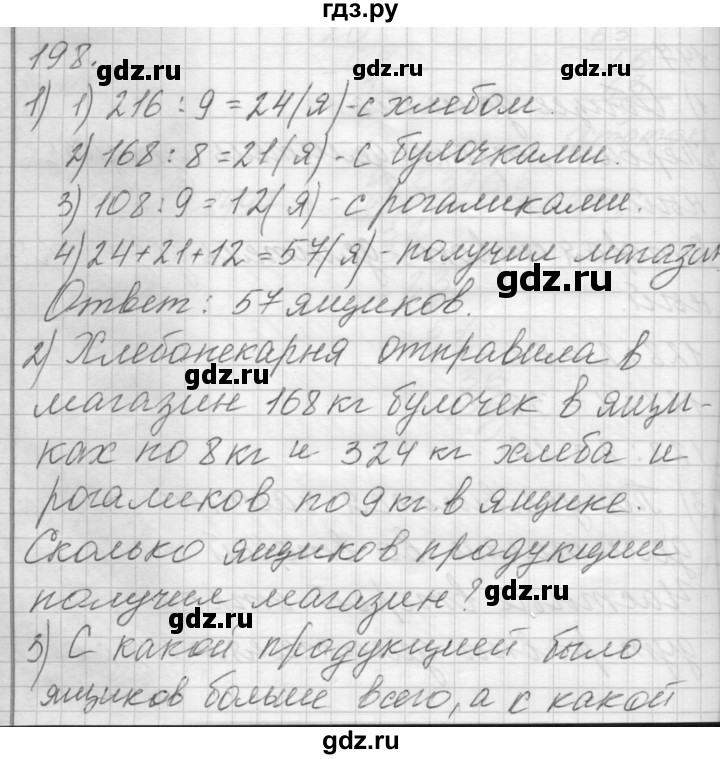 гдз.ру
198.
gdz.ru
gdz.ru
1) 1) 216 : 9 = 24(я)-с хлебом.
2) 168 : 8 = 21(я)-с булочками.
gdz.ru
gdz.ru
3) 108 : 9 = 12(я)-с рогаликами.
4) 24+21+12 = 57(я)-получил магазин
gdz.ru
Ответ: 57 ящиков.
2) Хлебопекарня отправила в
gdz.ru
магазин 168 кг булочек в ящи-
ках по 8 кг и 324 кг хлеба и
рогаликов по 9 кг в ящике.
Сколько ящиков продукции
получил магазин?
gdz.ru
gdz.ru
3) С какой продукцией было
ящиков больше всего, а с какой
gdz.ru